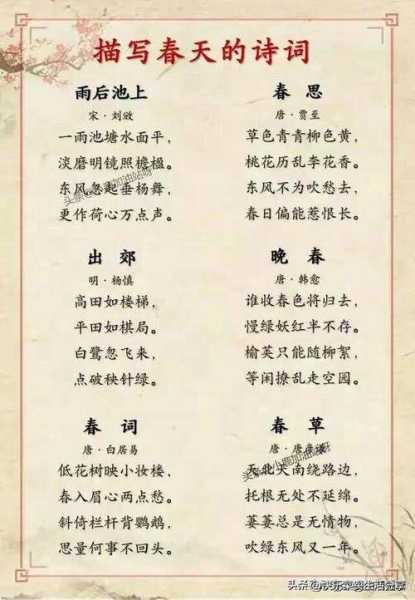 描写春天的诗词
雨后池上
宋·刘攽
一雨池塘水面平，
淡磨明镜照檐楹。
东风忽起垂杨舞，
更作荷心万点声。
春思
唐·贾至
草色青青柳色黄，
桃花历乱李花香。
东风不为吹愁去，
春日偏能惹恨长。
出郊
明·杨慎
高田如楼梯，
平田如棋局。
白鹭忽飞来，
点破秧针绿。
晚春
唐·韩愈
谁收春色将归去，
慢绿妖红半不存。
榆荚只能随柳絮，
等闲撩乱走空园。
春词
唐·白居易
低花树映小妆楼，
春入眉心两点愁。
斜倚栏杆背鹦鹉，
思量何事不回头。
春草
唐·唐彦谦
天北天南绕路边，
托根无处不延绵。
萋萋总是无情物，
吹绿东风又一年。